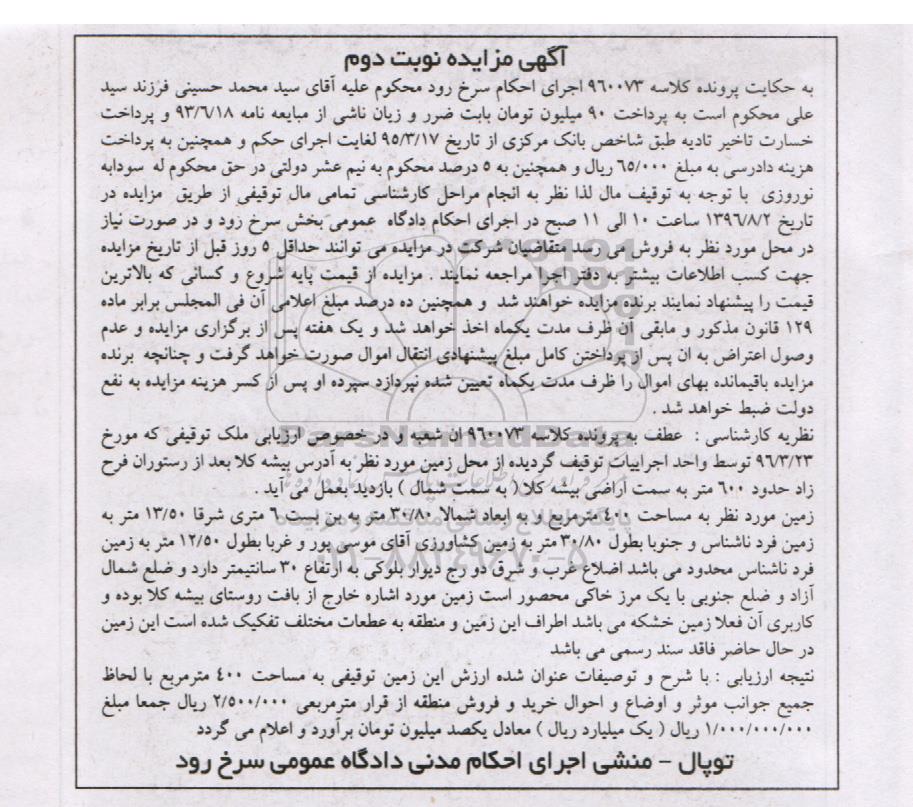 آگهی مزایده نوبت دوم
به حکایت پرونده کلاسه ۹۶۰۰۷۳ اجرای احکام سرخ رود محکوم علیه آقای سید محمد حسینی فرزند سید
علی محکوم است به پرداخت ۹۰ میلیون تومان بابت ضرر و زیان ناشی از مبایعه نامه ۹۳/۶/۱۸ و پرداخت
خسارت تاخیر تادیه طبق شاخص بانک مرکزی از تاریخ ۹۵/۳/۱۷ لغایت اجرای حکم و همچنین به پرداخت
هزینه دادرسی به مبلغ ۶۵/۰۰۰ ریال و همچنین به ۵ درصد محکوم به نیم عشر دولتی در حق محکوم له سودابه
نوروزی با توجه به توقیف مال لذا نظر به انجام مراحل کارشناسی تمامی مال توقیفی از طریق مزایده در
تاریخ ۱۳۹۶/۸/۲ ساعت ۱۰ الی ۱۱ صبح در اجرای احکام دادگاه عمومی بخش سرخ رود و در صورت نیاز
در محل مورد نظر به فروش می رسد متقاضیان شرکت در مزایده می توانند حداقل ۵ روز قبل از تاریخ مزایده
جهت کسب اطلاعات بیشتر به دفتر اجرا مراجعه نمایند . مزایده از قیمت پایه شروع و کسانی که بالاترین
قیمت را پیشنهاد نمایند برنده مزایده خواهند شد و همچنین ده درصد مبلغ اعلامی آن فی المجلس برابر ماده
۱۲۹ قانون مذکور و مابقی آن ظرف مدت یکماه اخذ خواهد شد و یک هفته پس از برگزاری مزایده و عدم
وصول اعتراض به ان پس از پرداختن کامل مبلغ پیشنهادی انتقال اموال صورت خواهد گرفت و چنانچه برنده
مزایده باقیمانده بهای اموال را ظرف مدت یکماه تعیین شده نپردازد سپرده او پس از کسر هزینه مزایده به نفع
دولت ضبط خواهد شد .
نظریه کارشناسی : عطف به پرونده کلاسه ۹۶۰۰۷۳ ان شعبه و در خصوص ارزیابی ملک توقیفی که مورخ
۹۶/۳/۲۳ توسط واحد اجراییات توقیف گردیده از محل زمین مورد نظر به آدرس بیشه کلا بعد از رستوران فرح
زاد حدود ۶۰۰ متر به سمت اراضی بیشه کلا ( به سمت شمال ) بازدید بعمل می آید .
زمین مورد نظر به مساحت ۴۰۰ متر مربع و به ابعاد شمالا ۳۰/۸۰ متر به بن بست ۶ متری شرقا ۱۳/۵۰ متر به
زمین فرد ناشناس و جنوبا بطول ۳۰/۸۰ متر به زمین کشاورزی آقای موسی پور و غربا بطول ۱۲/۵۰ متر به زمین
فرد ناشناس محدود می باشد اضلاع غرب و شرق دو رج دیوار بلوکی به ارتفاع ۳۰ سانتیمتر دارد و ضلع شمال
آزاد و ضلع جنوبی با یک مرز خاکی محصور است زمین مورد اشاره خارج از بافت روستای بیشه کلا بوده و
کاربری آن فعلا زمین خشکه می باشد اطراف این زمین و منطقه به عطعات مختلف تفکیک شده است این زمین
در حال حاضر فاقد سند رسمی می باشد
نتیجه ارزیابی : با شرح و توصیفات عنوان شده ارزش این زمین توقیفی به مساحت ۴۰۰ مترمربع با لحاظ
جمیع جوانب موثر و اوضاع و احوال خرید و فروش منطقه از قرار مترمربعی ۲/۵۰۰/۰۰۰ ریال جمعا مبلغ
۱/۰۰۰/۰۰۰/۰۰۰ ریال ( یک میلیارد ریال ) معادل یکصد میلیون تومان برآورد و اعلام می گردد
توپال - منشی اجرای احکام مدنی دادگاه عمومی سرخ رود
ParsNamadData
پایگاه اطلاع رسانی مناقصه و مزایده
۰۲۱-۸۸۳۴۹۶۷۰-۵